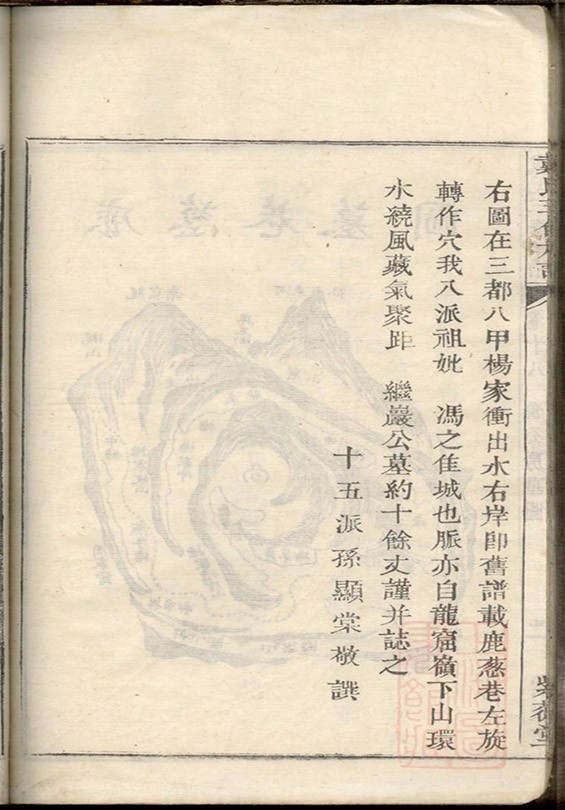 右圖在三都八甲楊家衝出水右岸卽舊譜載鹿葱巷左旋
轉作穴我八派祖妣　馮之佳城也脈亦自龍窟嶺下山環
水繞風藏氣聚距　繼巖公墓約十餘丈謹并誌之
十五派孫顯棠敬譔
紫薇堂